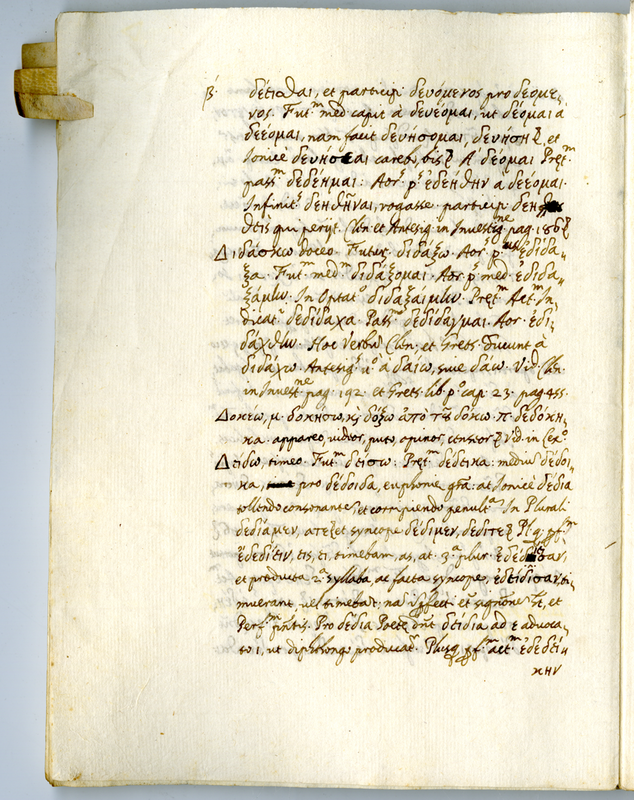 β. δέεσθαι, et particip. δευόμενος pro δεόμε-
νος. Fut.m med capit à δευέομαι, ut δέομαι à
δεέομαι, nam facit δευήσομαι, δευήσῃ et
Ionicè δευήσεαι carebis A δέομαι Pręt.m
pass.m δεδέημαι: Aor.s p.s ἐδεήθην a δεέομαι.
Infinit.s δεηθῆναι, rogasse. particip. δεη
θεὶς qui perijt. Clen. et Antesig. in Investig.ne pag. 186
Διδάσκω doceo. Futur. διδάξω. Aor. p.us ἐδίδα-
ξα. Fut.m med.m διδάξομαι. Aor. p. med. ἐδιδα-
ξάμην. In Optat.o διδαξαίμην. Pręt.m Act.m In-
dicat. δεδίδαχα. Pass.m δεδίδαγμαι. Aor. ἐδι-
δάχθην. Hoc Verbũ Clen. et Grets. ducunt à
διδάχω. Antesig. à δαίω, sive δάω. Vid. Clen.
in Invest.ne pag. 192. et Grets. lib. p.o cap. 23. pag 455.
Δοκέω, μ. δοκήσω, κ δόξω ἀπὸ τοῦ δόκω. π. δεδόκη-
κα. appareo, videor, puto, opinor, censeor Vid. in Lex.o
Δείδω, timeo. Fut.m δείσω: Pręt.m δέδεικα. mediũ δέδοι-
κα, pro δέδοιδα, euphonię gr̃a. at Ionicè δέδια
tollendo consonantẽ et corripiendo penult.a In Plurali
δεδίαμεν, ατε et syncope δέδιμεν, δέδιτε Plq. pf.m
ἐδεδίειν, εις, ει timebam, as, at. 3.a plur. ἐδεδίεισαν,
et producta 2.a syllaba, ac facta syncope, ἐδείδισαν, ti-
muerant, vel timebãt; nã et signõne et
Perf.m Pro δέδια Poetę dñt δείδια ad ε advoca-
to ι, ut diphthongo producat. Plusq. pf.m act.m ἐδεδεί-
κην